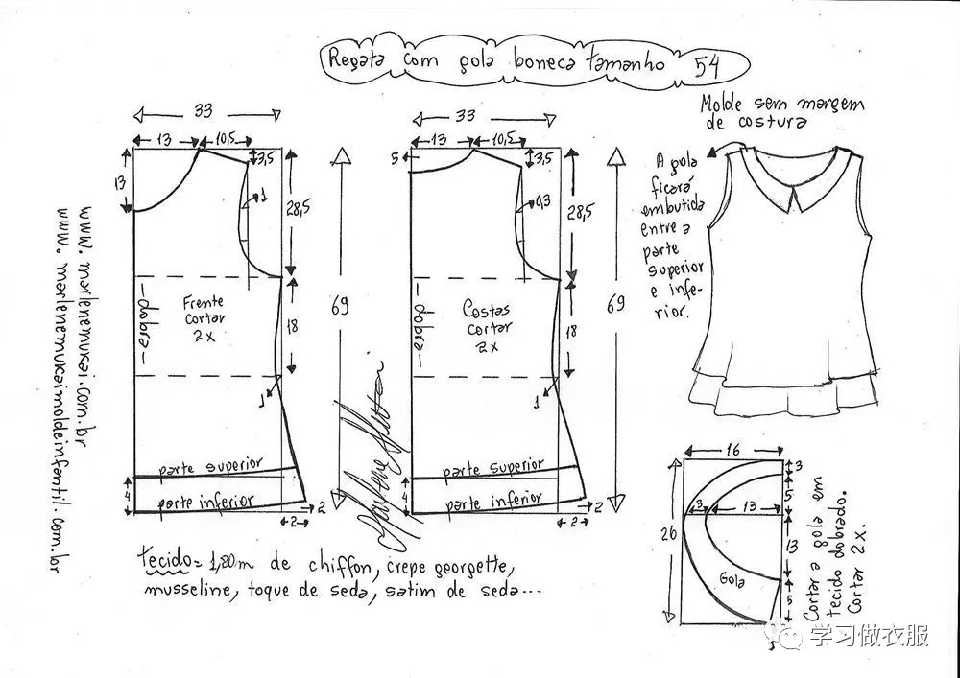 Regata com gola boneca tamanho 54
Molde sem margem
de costura
A gola
ficará
embutida
entre a
parte
superior
e infe-
rior.
33
13
10,5
3,5
13
1
28,5
69
18
Frente
cortar
2x
-dobra-
1
parte superior
parte inferior
4
2
2
33
13
10,5
5
3,5
28,5
69
18
Costas
cortar
2x
-dobra-
1
parte superior
parte inferior
4
2
2
www.marlenemukai.com.br
www.marlenemukaimoldeinfantil.com.br
16
3
5
3
13
26
13
Gola
5
Cortar a gola em
tecido dobrado.
Cortar 2x.
Tecido = 1,80m de chiffon, crepe georgette,
musseline, toque de seda, satim de seda...
学习做衣服